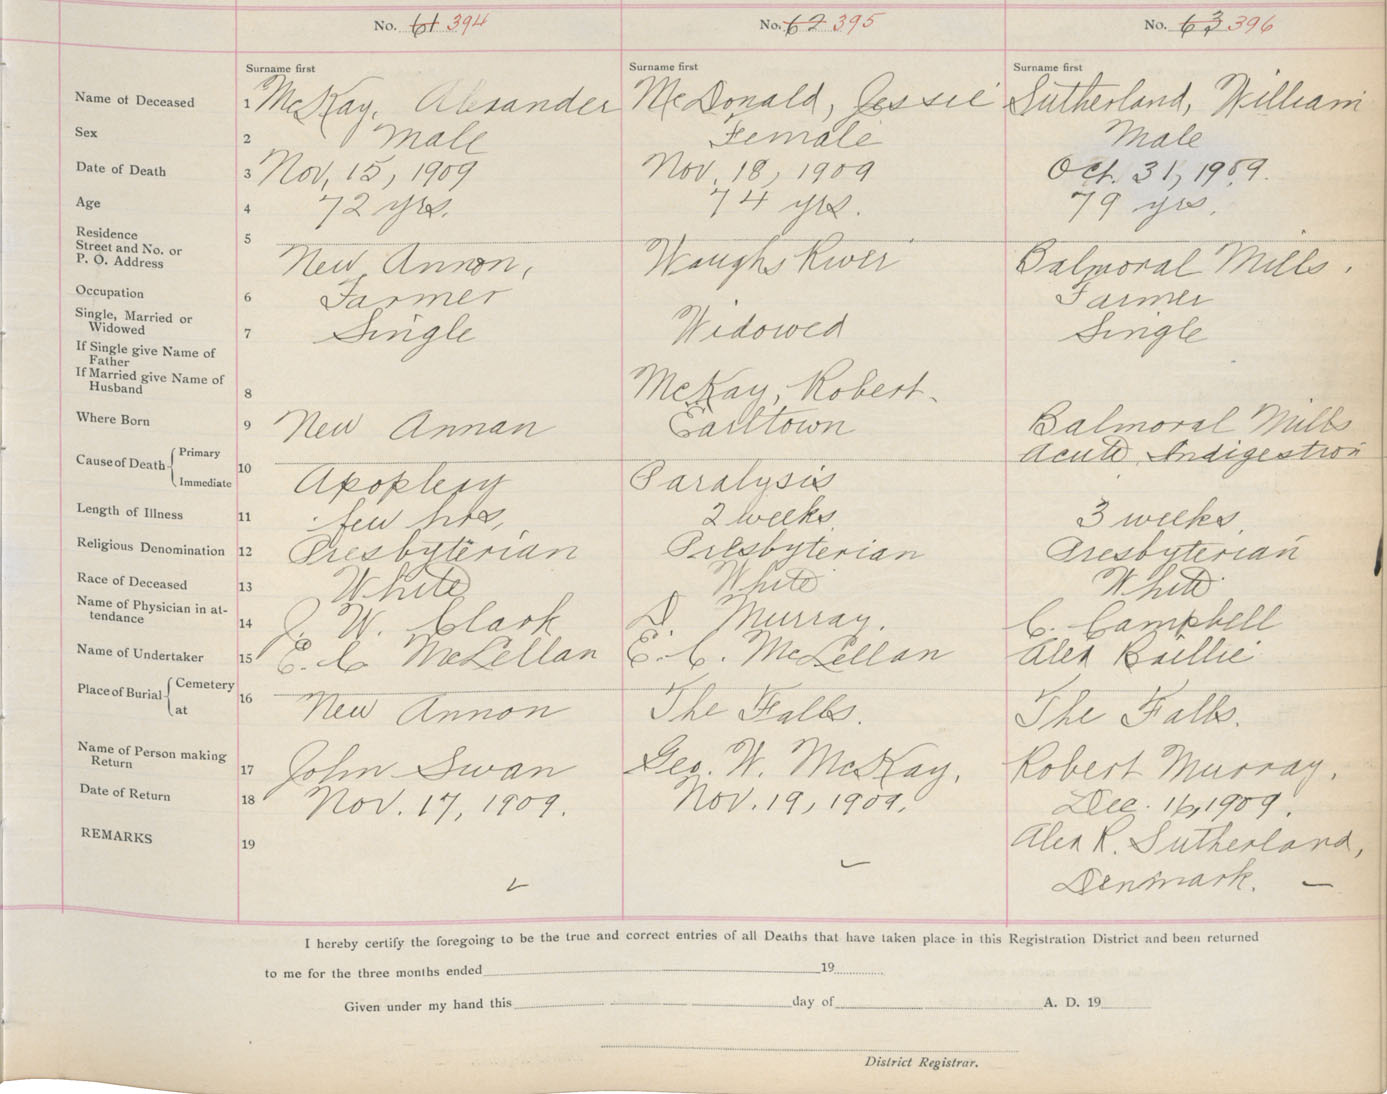 No. 61 394 No. 62 395 No. 63 396
Surname first Surname first Surname first
Name of Deceased 1 McKay, Alexander McDonald, Jessie Sutherland, William
Sex 2 Male Female Male
Date of Death 3 Nov. 15, 1909 Nov. 18, 1909 Oct. 31, 1909.
Age 4 72 yrs. 74 yrs. 79 yrs.
Residence
Street and No. or
P. O. Address 5 New Annon, Waughs River Balmoral Mills.
Occupation 6 Farmer Farmer
Single, Married or
Widowed 7 Single Widowed Single
If Single give Name of
Father
If Married give Name of
Husband 8 McKay, Robert.
Where Born 9 New Annan Earltown Balmoral Mills
Cause of Death Primary Acute Indigestion
Immediate 10 Apoplexy Paralysis
Length of Illness 11 few hrs, 2 weeks 3 weeks.
Religious Denomination 12 Presbyterian Presbyterian Presbyterian
Race of Deceased 13 White White White
Name of Physician in at-
tendance 14 J. W. Clark D Murray. C. Campbell
Name of Undertaker 15 E. C McLellan E. C. McLellan Alex Baillie
Place of Burial Cemetery
at 16 New Annon The Falls. The Falls.
Name of Person making
Return 17 John Swan Geo. W. McKay, Robert Murray.
Date of Return 18 Nov. 17, 1909. Nov. 19, 1909. Dec. 16, 1909.
REMARKS 19 Alex R. Sutherland,
Denmark.
I hereby certify the foregoing to be the true and correct entries of all Deaths that have taken place in this Registration District and been returned
to me for the three months ended 19
Given under my hand this day of A. D. 19
District Registrar.